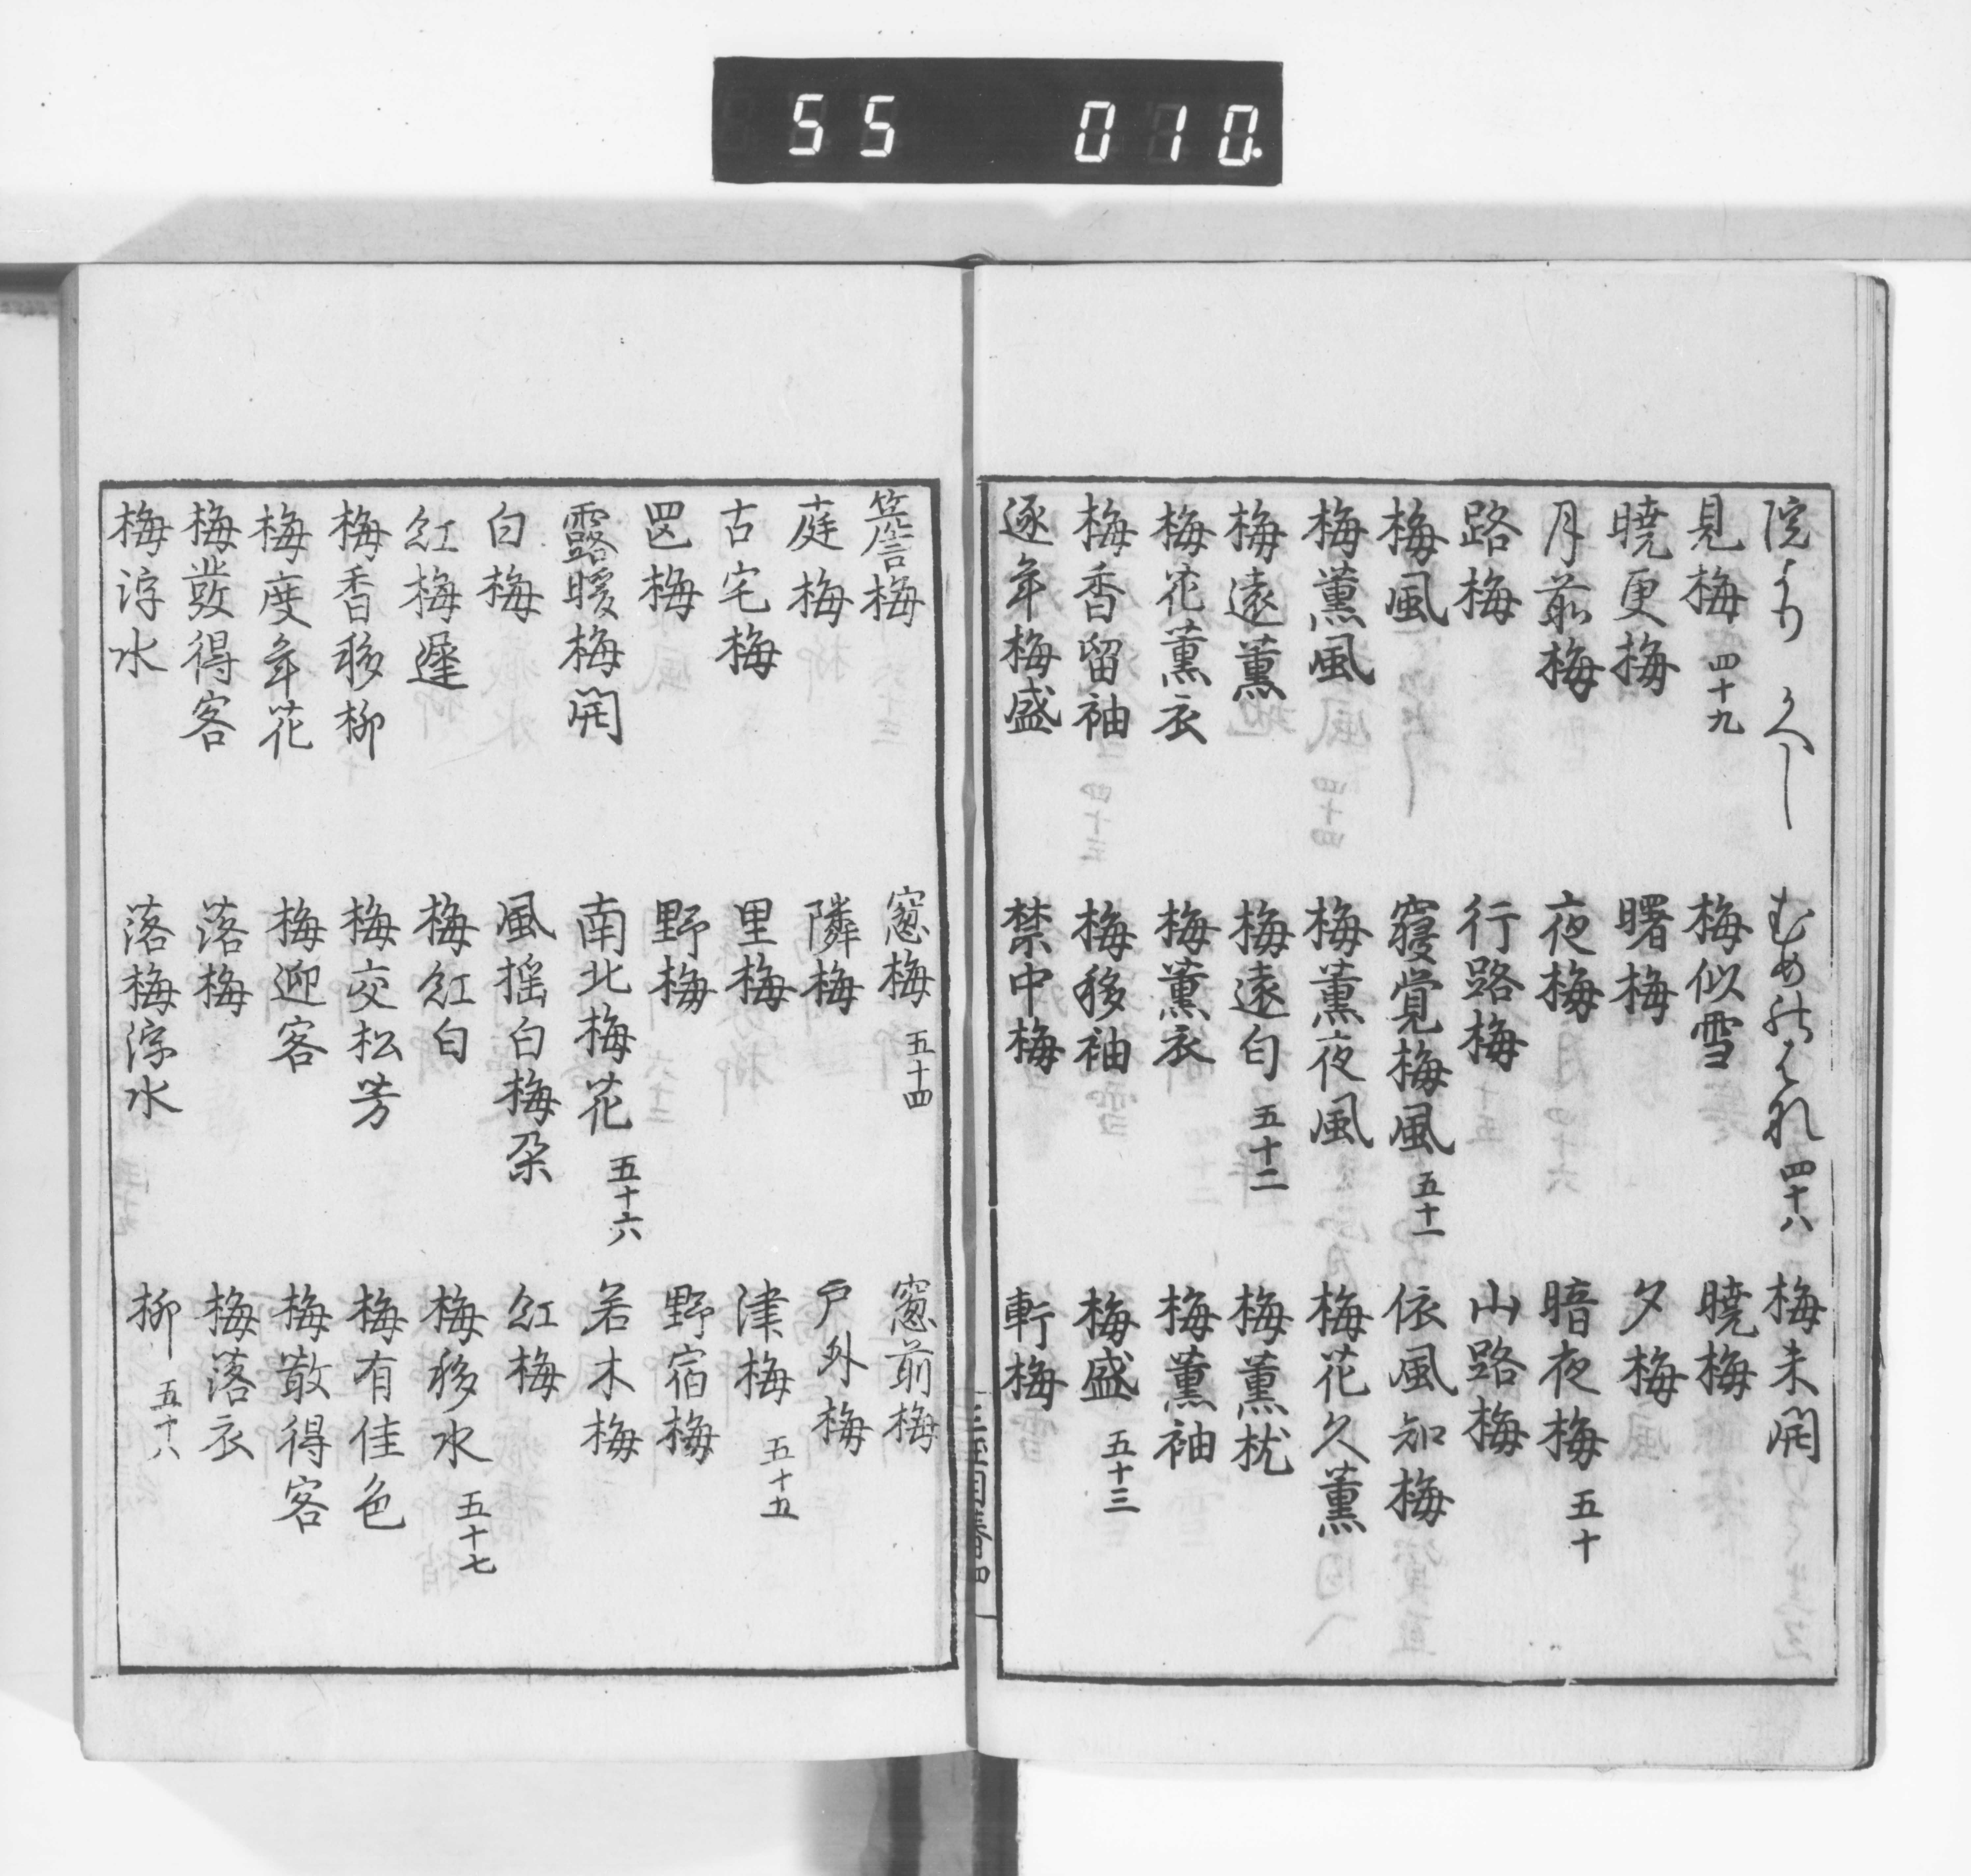 55 010
院より かへし むめのはな 四十八 梅未開
見梅 四十九 梅似雪 曉梅
曉更梅 曙梅 夕梅
月前梅 夜梅 暗夜梅 五十
路梅 行路梅 山路梅
梅風 寢覚梅風 五十一 依風知梅
梅薫風 梅薫夜風 梅花久薫
梅遠薫 梅遠匂 五十二 梅薫枕
梅花薫衣 梅薫衣 梅薫袖
梅香留袖 梅移袖 梅盛 五十三
逐年梅盛 禁中梅 軒梅
簷梅 窓梅 五十四 窓前梅
庭梅 隣梅 戸外梅
古宅梅 里梅 津梅 五十五
邑梅 野梅 野宿梅
露暖梅開 南北梅花 五十六 若木梅
白梅 風揺白梅朶 紅梅
紅梅遅 梅紅白 梅移水 五十七
梅香移柳 梅交松芳 梅有佳色
梅度年花 梅迎客 梅散得客
梅發得客 落梅 梅落衣
梅浮水 落梅浮水 柳 五十八